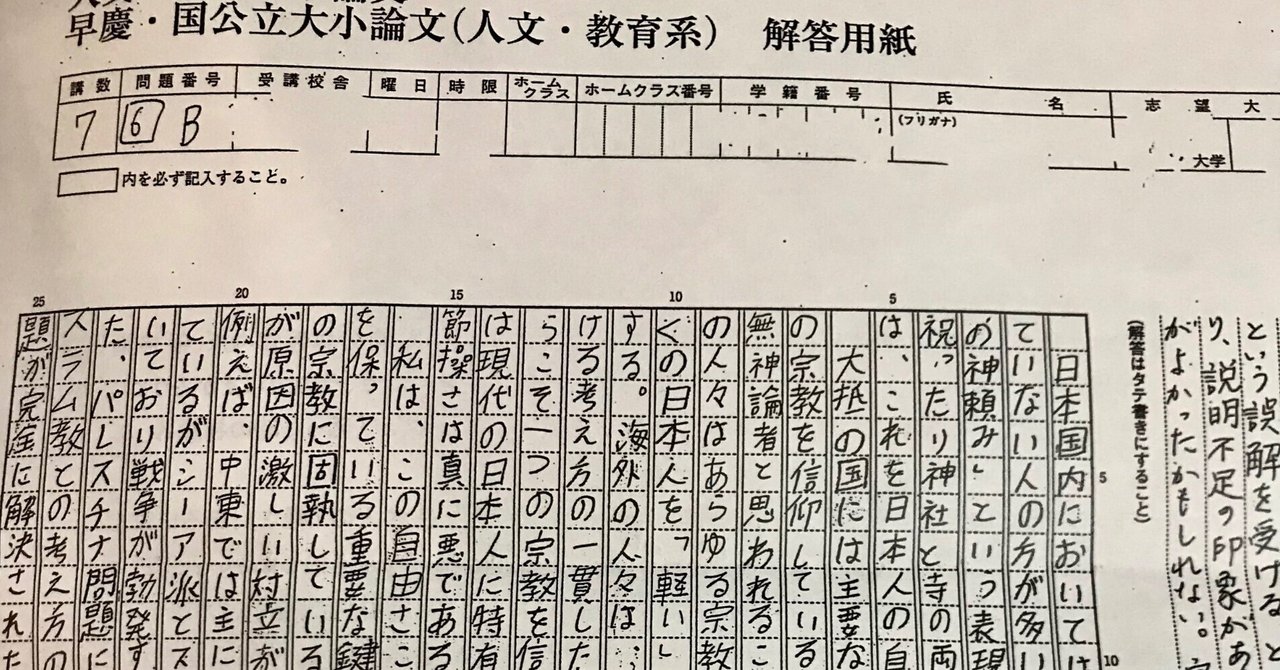 早慶・国公立大小論文(人文・教育系) 解答用紙
講数 問題番号 受講校舎 曜日 時限 ホームクラス ホームクラス番号 学籍番号 氏名 志望大
7 6 B
(フリガナ)
大学
内を必ず記入すること。
という誤解を受けると
り、説明不足の印象があ
がよかったかもしれない。
(解答はタテ書きにすること)
5 10 15 20 25
5
10
日本国内において
ていない人の方が多い
の神頼み」という表現
祝ったり神社と寺の両
は、これを日本人の自
大抵の国には主要な
の宗教を信仰してい
無神論者と思われるこ
の人々はあらゆる宗教
くの日本人を「軽い
する。海外の人々は、
ける考え方の一貫した
らこそ一つの宗教を信
は現代の日本人に特有
節操さは真に悪である
私は、この自由さこ
を保っている重要な鍵
の宗教に固執している
が原因の激しい対立が
例えば、中東では主に
ているがシーア派とス
いており戦争が勃発す
た、パレスチナ問題に
スラム教との考え方の
題が完全に解決された